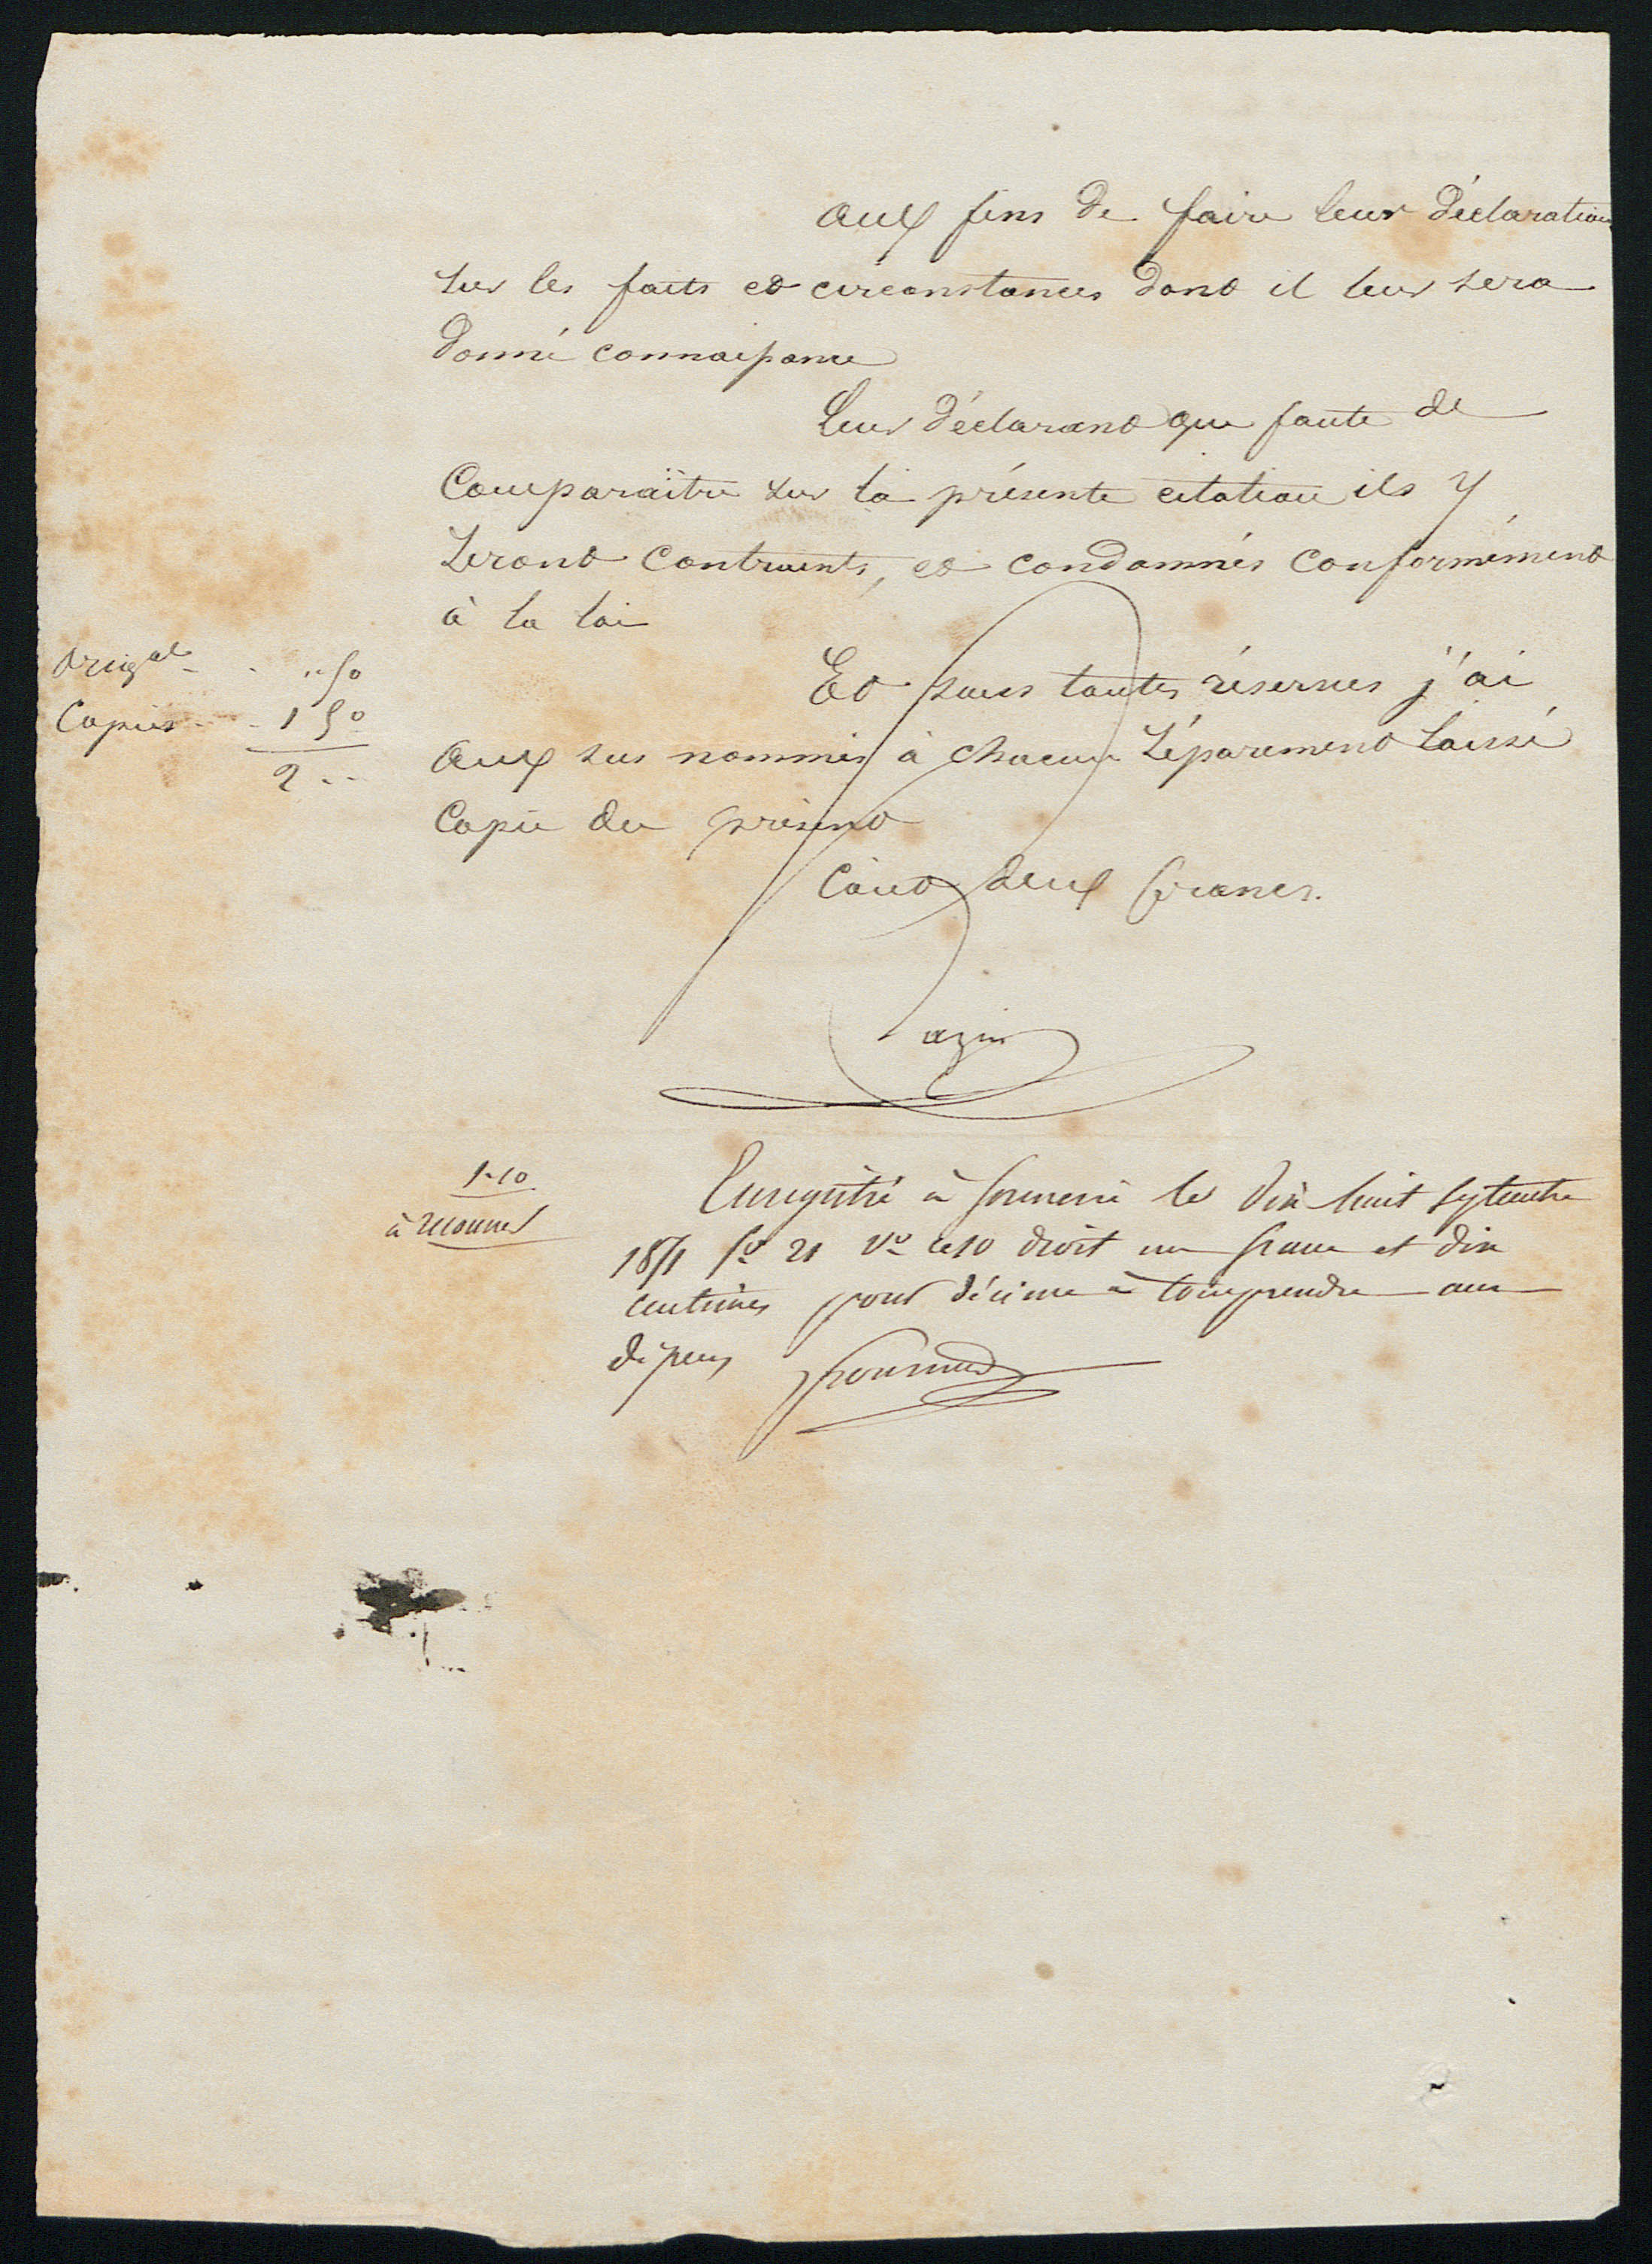 aux fins de faire leur déclaration
sur les faits et circonstances dont il leur sera
donné connaissance
Leur déclarant que faute de
Comparaître sur la présente citation ils y
seront contraints, et condamnés conformément
à la loi
Et sous toutes réserves j'ai
aux sus nommés à chacun séparément laissé
Copie du présent
Coût deux francs.
Origal - . " 50
Copies - - 1 50
2 " "
azin
1-10
Enregistré à le dix huit septembre
1871 fo 21 Vo c 10 droit un franc et dix
centimes pour décime à comprendre aux
dépens